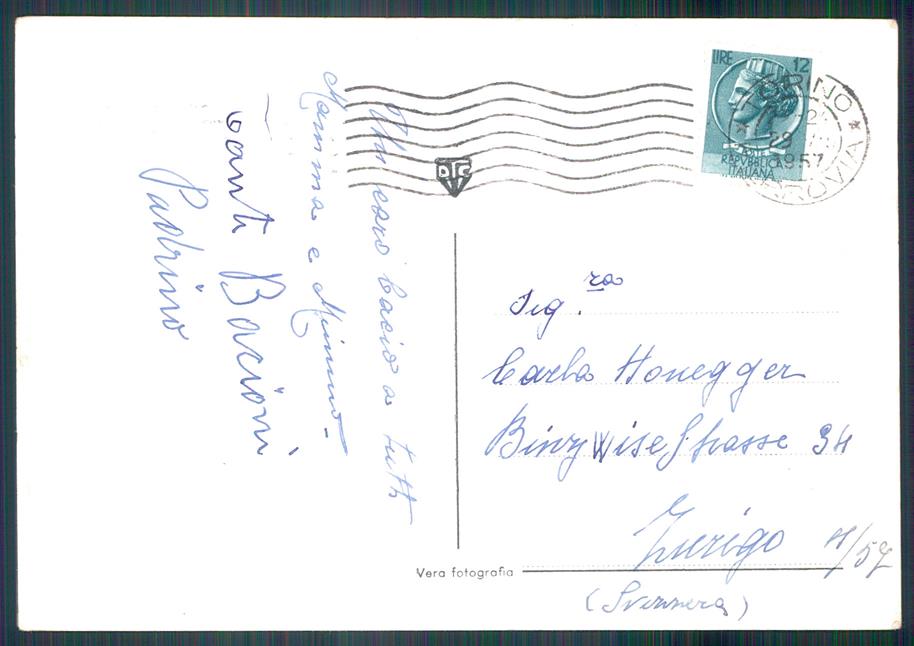 Un caro bacio a tutti
Mamma e Mimmo -
Tanti Bacioni
Padrino
LIRE 12
POSTE
REPVBBLICA
ITALIANA
TORINO
1957
FERROVIA
DTC
Sig.ra
Carla Honegger
BinzWiseStrasse 34
Zurigo
(Svizzera)
Vera fotografia